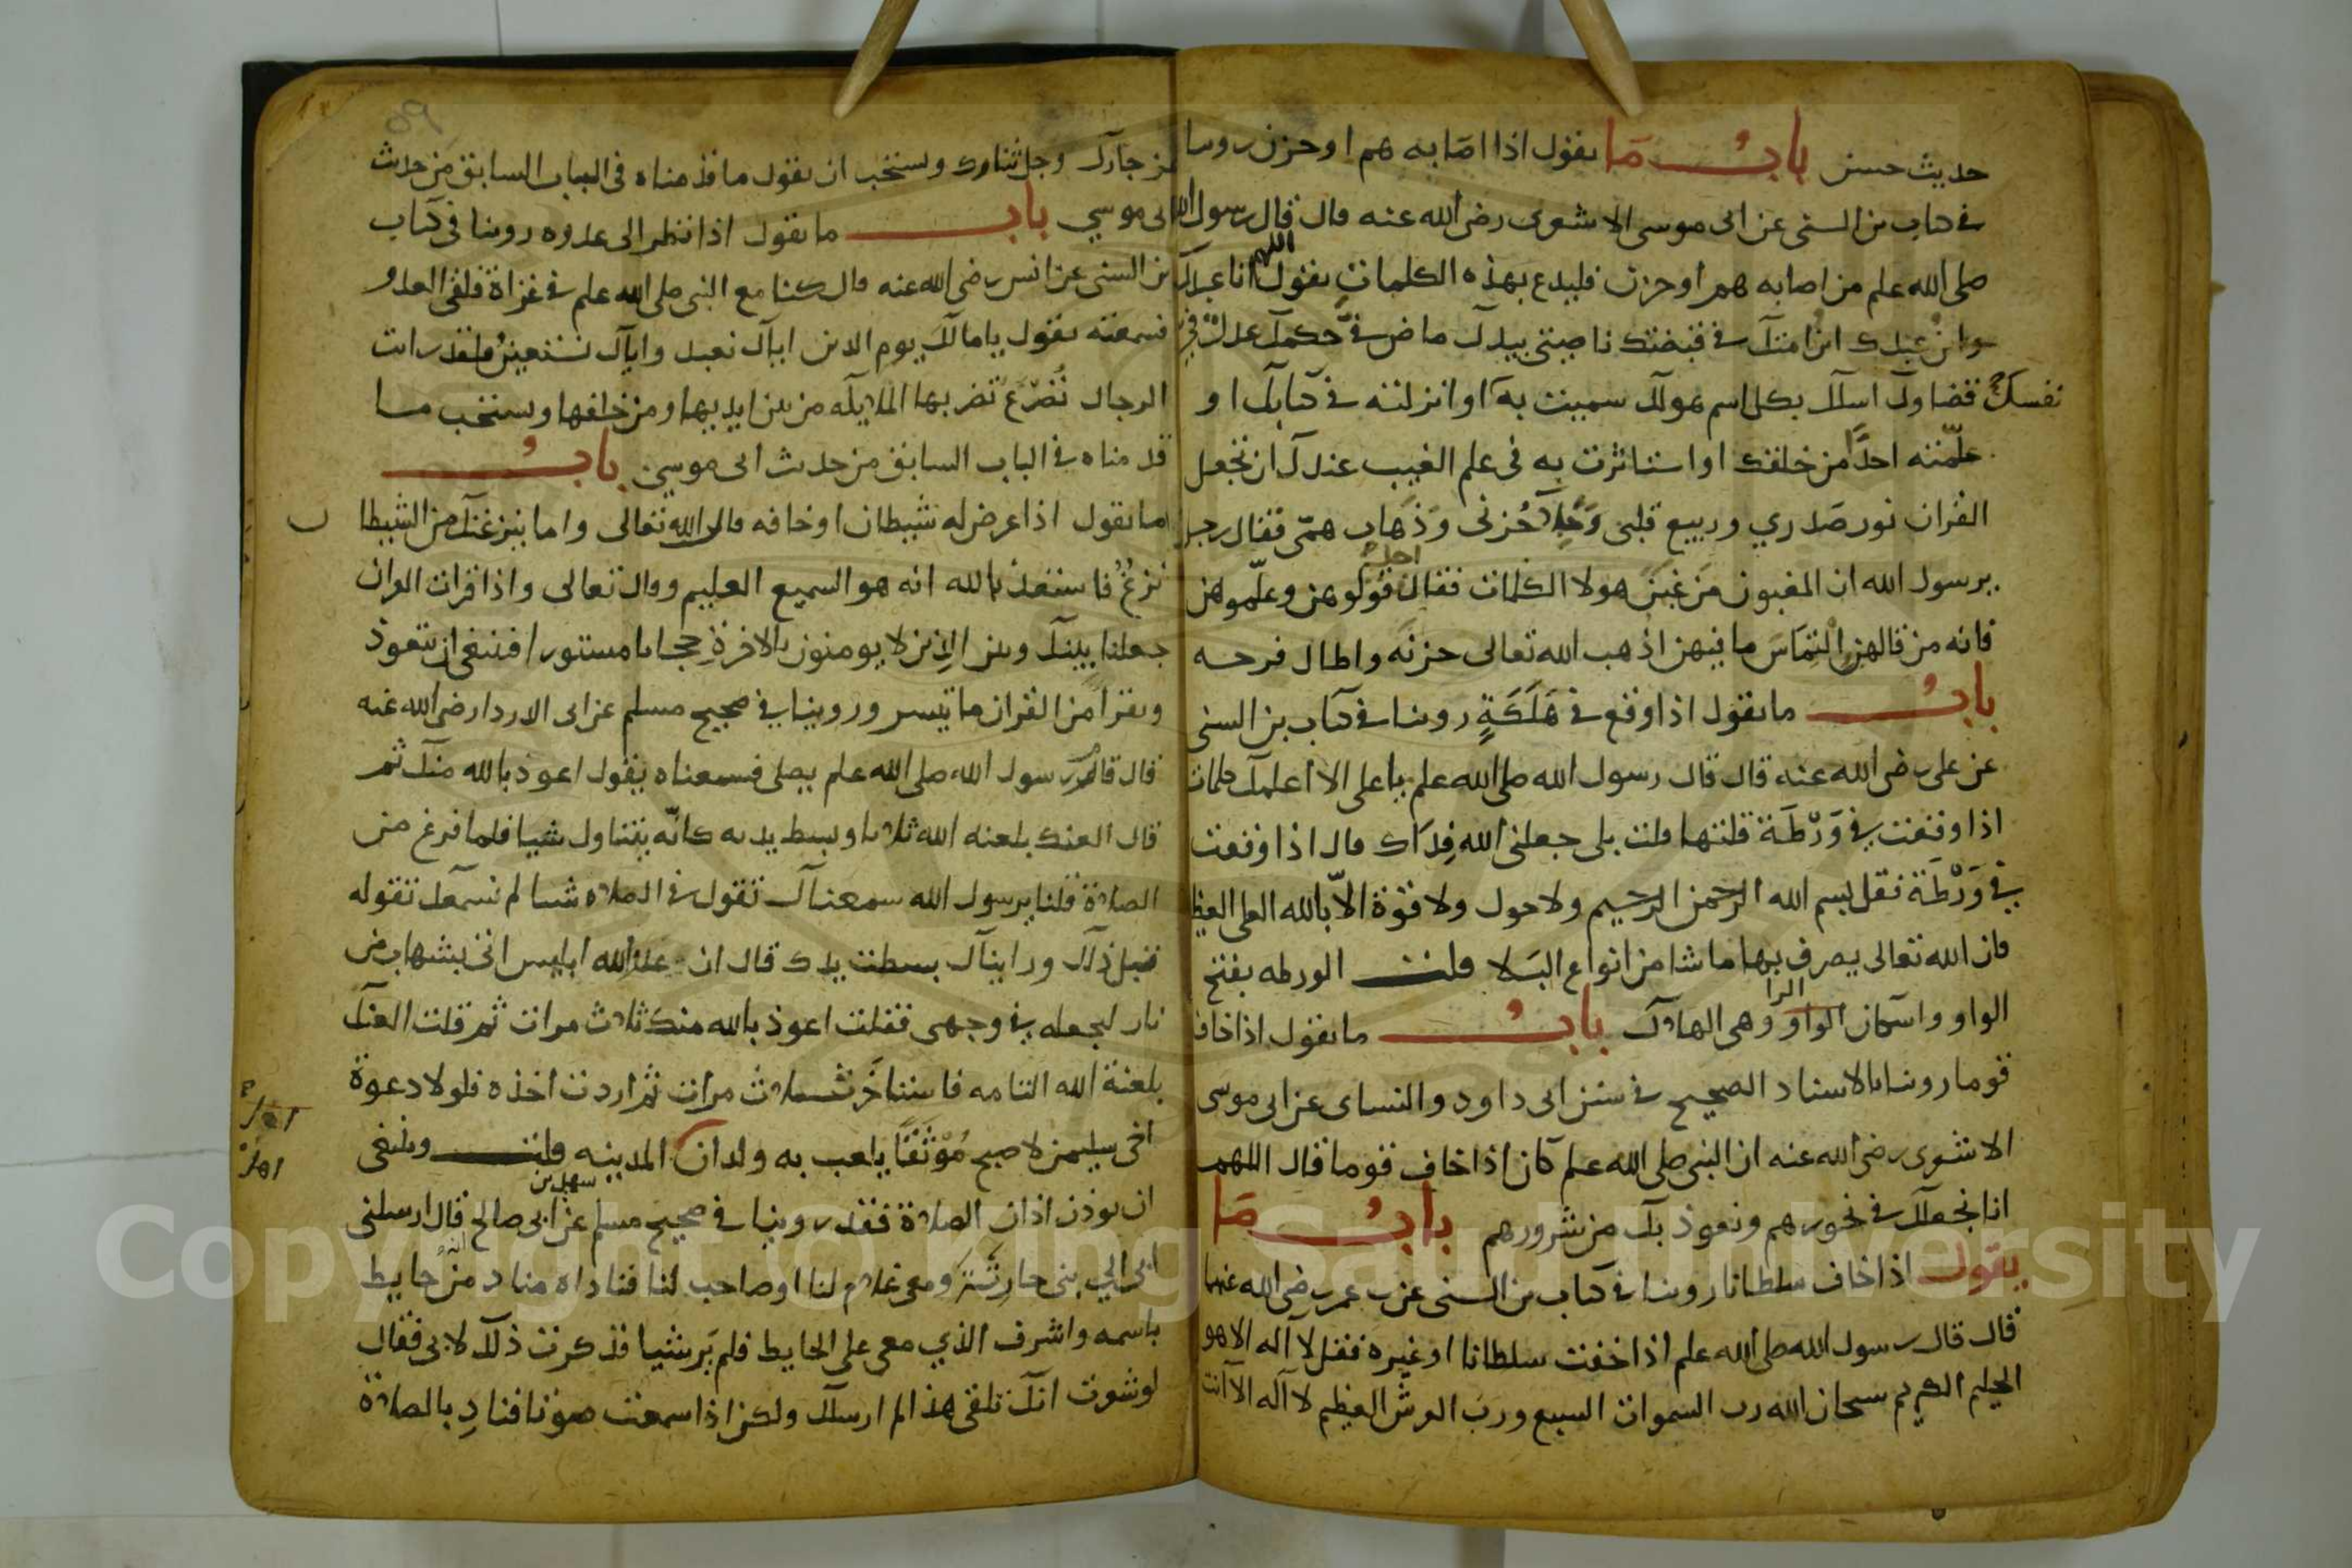 حديث حسن باب ما يقول اذا اصابه هم او حزن روينا
في كتاب بن السني عن ابي موسى الاشعري رضي الله عنه قال قال رسول الله
صلى الله علم من اصابه هم او حزن فليدع بهذه الكلمات يقول اللهم انا عبدك
وابن عبدك ابن امتك في قبضتك ناصيتي بيدك ماض في حكمك عدل في
نفسك قضاوك اسالك بكل اسم هو لك سميت به او انزلته في كتابك او
علمته احدا من خلقك او استاثرت به في علم الغيب عندك ان تجعل
القران نور صدري وربيع قلبي وجلا حزني وذهاب همي فقال رجل
يرسول الله ان المغبون من غبن هولا الكلمات فقال اجل قولوهن وعلموهن
فانه من قالهن التماس ما فيهن اذهب الله تعالى حزنه واطال فرحه
باب ما يقول اذا وقع في هلكة روينا في كتاب بن السني
عن علي رضي الله عنه قال قال رسول الله صلى الله علم يا علي الا اعلمك كلمات
اذا وقعت في ورطة قلتها قلت بلى جعلني الله فداك قال اذا وقعت
في ورطة فقل بسم الله الرحمن الرحيم ولا حول ولا قوة الا بالله العلي العظيم
فان الله تعالى يصرف بها ما شا من انواع البلا قلت الورطه بفتح
الواو واسكان الواو الرا وهي الهلاك باب ما يقول اذا خاف
قوما روينا بالاسناد الصحيح في سنن ابي داود والنساي عن ابي موسى
الاشوري رضي الله عنه ان النبي صلى الله علم كان اذا خاف قوما قال اللهم
انا نجعلك في نحورهم ونعوذ بك من شرورهم باب ما
يقول اذا خاف سلطانا روينا في كتاب بن السني عن ب عمر رضي الله عنهما
قال قال رسول الله صلى الله علم اذا خفت سلطانا او غيره فقل لا اله الا هو
الحليم الكريم سبحان الله رب السموات السبع ورب العرش العظيم لا اله الا انت
عز جارك وجل ثناوك ويستحب ان يقول ما قدمناه في الباب السابق من حديث
ابي موسي باب ما يقول اذا نظر الى عدوه روينا في كتاب
بن السني عن انس رضي الله عنه قال كنا مع النبي صلى الله علم في غزاة فلقي العدو
فسمعته يقول يا مالك يوم الدين اياك نعبد واياك نستعين فلقد رايت
الرجال تصرع تضربها الملايكه من بين ايديها ومن خلفها ويستحب ما
قدمناه في الباب السابق من حديث ابي موسي باب
ما يقول اذا عرض له شيطان او خافه قال الله تعالى واما ينزغنك من الشيطا ن
نزغ فاستعذ بالله انه هو السميع العليم وقال تعالى واذا قرات القران
جعلنا بينك وبين الذين لا يومنون بالاخرة حجابا مستورا فينبغي ان يتعوذ
ويقرا من القران ما تيسر وروينا في صحيح مسلم عن ابي الدردا رضي الله عنه
قال قام رسول الله صلى الله علم يصلي فسمعناه يقول اعوذ بالله منك ثم
قال العنك بلعنه الله ثلاثا وبسط يده كانه يتناول شيا فلما فرغ من
الصلاة قلنا يرسول الله سمعناك تقول في الصلاه شيا لم نسمعك تقوله
قبل ذلك ورايناك بسطت يدك قال ان عدو الله ابليس اتى بشهاب من
نار ليجعله في وجهي فقلت اعوذ بالله منك ثلاث مرات ثم قلت العنك
بلعنة الله التامه فاستاخر ثلاث مرات ثم اردت اخذه فلولا دعوة
اخي سليمن لاصبح موثقا يلعب به ولدان المدينه قلت وينبغي
ان يوذن اذان الصلاة فقد روينا في صحيح مسلم عن سهيل بن ابي صالح قال ارسلني
ابي الي بني حارثة ومعي غلام لنا او صاحب لنا فناداه مناد من حايط
باسمه واشرف الذي معي على الحايط فلم ير شيا فذكرت ذلك لابي فقال
لو شعرت انك تلقى هذا لم ارسلك ولكن اذا سمعت صوتا فناد بالصلاة
Copyright © King Saud University